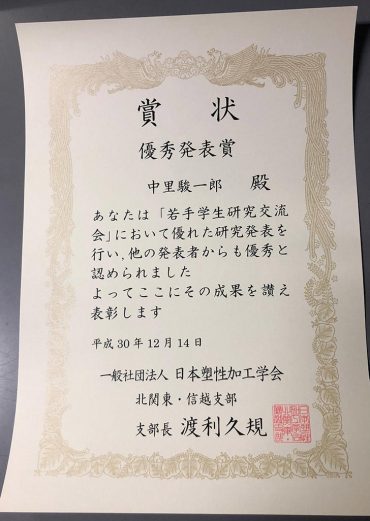 賞 状
優秀発表賞
中里駿一郎 殿
あなたは「若手学生研究交流
会」において優れた研究発表を
行い、他の発表者からも優秀と
認められました
よってここにその成果を讃え
表彰します
平成30年12月14日
一般社団法人 日本塑性加工学会
北関東・信越支部
支部長 渡利久規